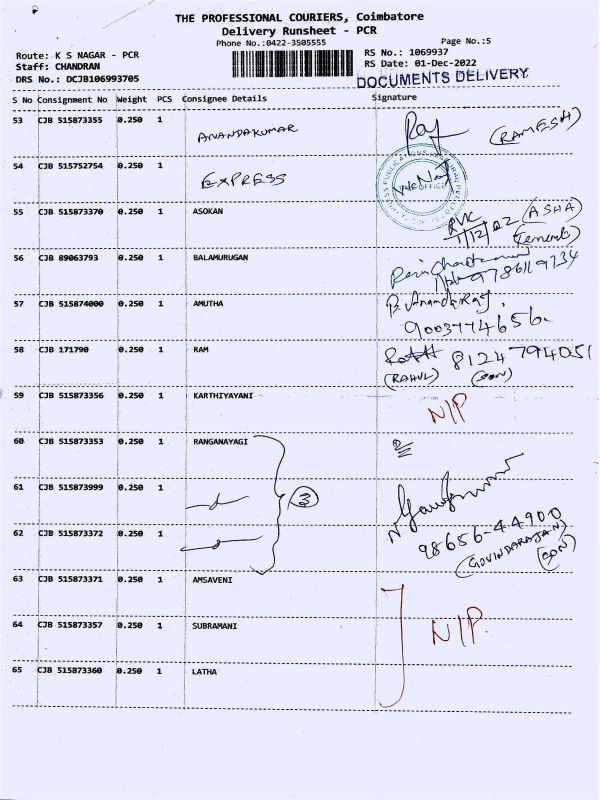 THE PROFESSIONAL COURIERS, Coimbatore
Delivery Runsheet - PCR
Phone No.:0422-3505555
Page No.:5
Route: K S NAGAR - PCR
RS No.: 1069937
Staff: CHANDRAN
RS Date: 01-Dec-2022
DRS No.: DCJB106993705
DOCUMENTS DELIVERY
S No Consignment No Weight PCS Consignee Details Signature
53 CJB 515873355 0.250 1 ANANDAKUMAR Raj (RAMESH)
54 CJB 515752754 0.250 1 EXPRESS
OFFICE
55 CJB 515873370 0.250 1 ASOKAN (ASHA)
1/12/02
56 CJB 89063793 0.250 1 BALAMURUGAN
9786119734
57 CJB 515874000 0.250 1 AMUTHA B. AnandaRaj,
9003774656
58 CJB 171790 0.250 1 RAM 8124794051
(RAHUL) (SON)
59 CJB 515873356 0.250 1 KARTHIYAYANI N/P
60 CJB 515873353 0.250 1 RANGANAYAGI
61 CJB 515873999 0.250 1 3
62 CJB 515873372 0.250 1 98656-44900
(GOVINDARAJAN)
(SON)
63 CJB 515873371 0.250 1 AMSAVENI
64 CJB 515873357 0.250 1 SUBRAMANI N/P.
65 CJB 515873360 0.250 1 LATHA